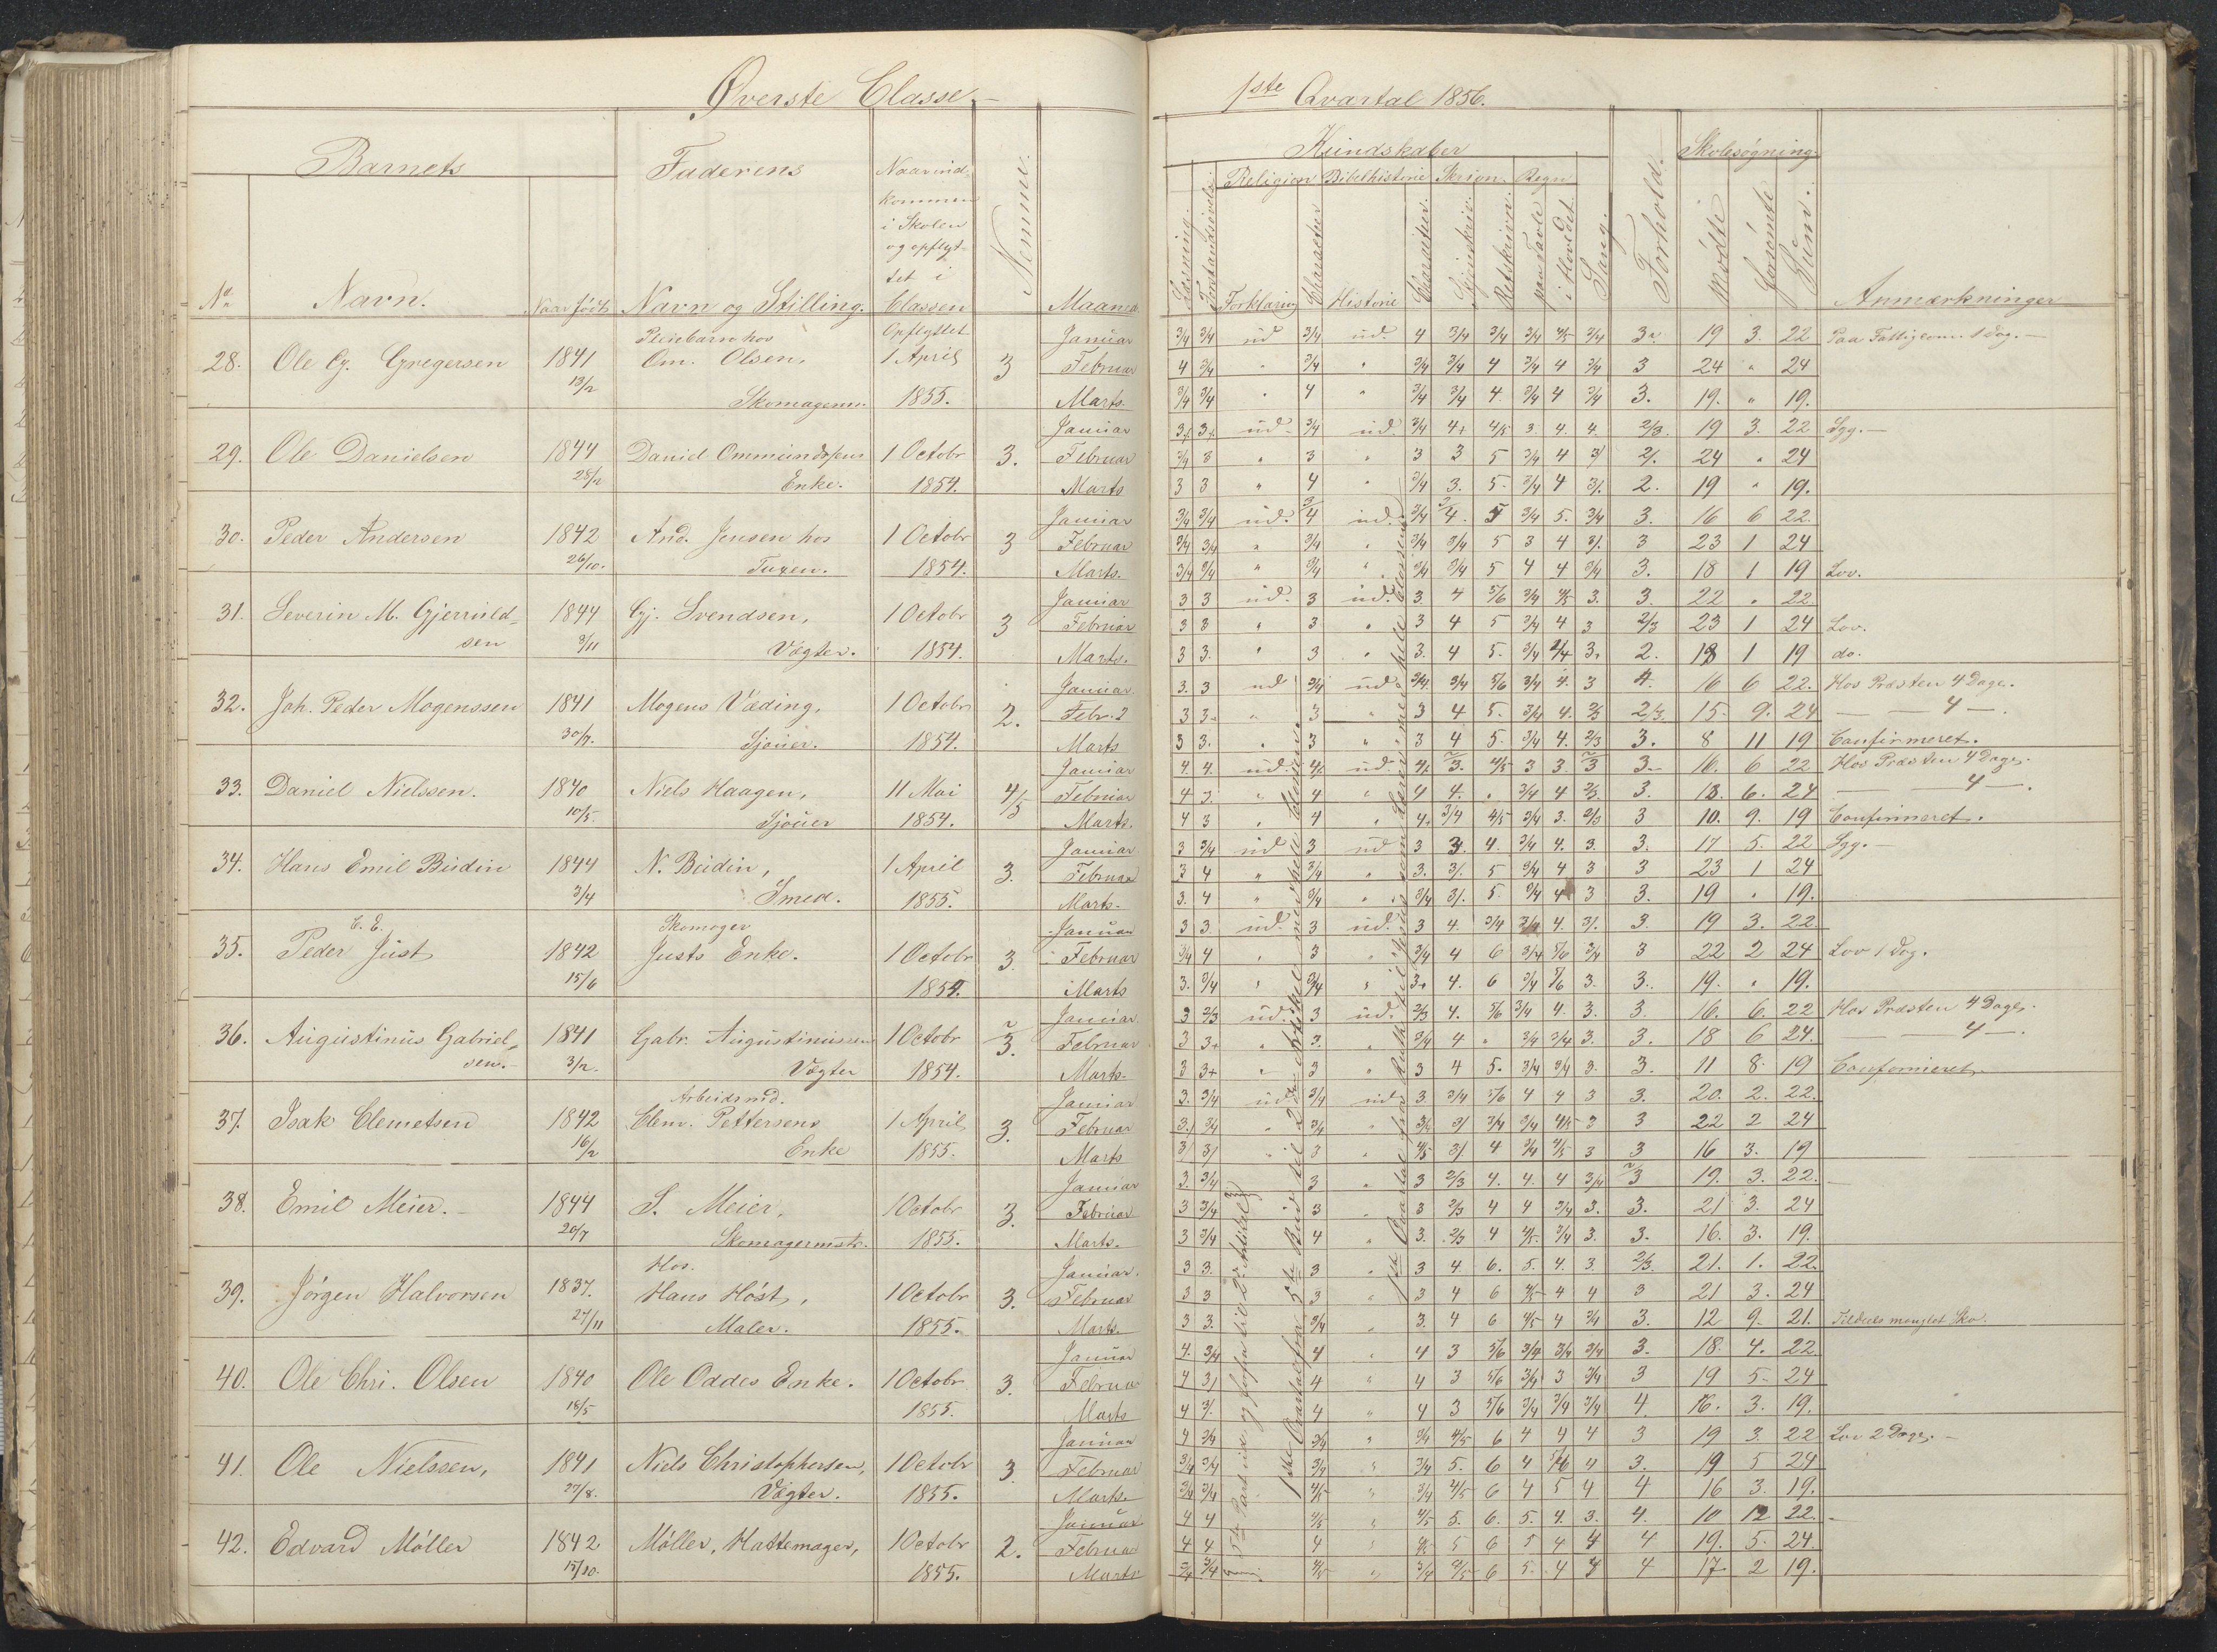 Øverste Classe.
1ste Qvartal 1856.
Barnets
Faderens
Naar ind-
kommen
i Skolen
og opflyt-
tet i
Classen
Nemme.
Maaned
No
Navn.
Naar født
Navn og Stilling.
Kundskaber
Læsning.
Religion
Bibelhistorie
Skrivn.
Regn
Forklaring
Character
Historie
Character.
Retskrivn.
paa Tavle
i Hovedet
Sang.
Forhold.
Skolesøgning.
Mødte
Forsømte
Sum.
Anmærkninger
Pleiebarn hos
Opflyttet
Januar 3/4 3/4 ud 3/4 ud. 4 3/4 3/4 3/4 4/5 3/4 3 19 3. 22 Paa Fattigcom. 1 Dag.
28. Ole Gj. Gregersen 1841 Om. Olsen, 1 April 3 Februar 4 3/4 " 3/4 " 3/4 3/4 4 3/4 4 3/4 3 24 " 24
13/2 Skomagerm. 1855. Marts. 3/4 3/4 " 4 " 3/4 3/4 4. 3/4 4 3/4 3. 19. " 19.
Januar ud. 3/4 ud. 3/4 4+ 4/5 3. 4. 4. 2/3. 19 3. 22 Syg.
29. Ole Danielsen 1844 Daniel Ommundsens 1 Octobr 3. Februar 3/4 3 " 3 " 3 3 5 3/4 4 24 " 24
28/2 Enke. 1854. Marts 3 3 " 4 " 3/4 3. 5. 3/4 4 2. 19 " 19.
Januar 3/4 3/4 ud. 4 ud. 3/4 4. 5 3/4 5. 3/4 3. 16 6 22.
30. Peder Andersen 1842 And. Jensen hos 1 Octobr 3 Februar 3/4 3/4 " 3/4 " 3/4 3/4 5 3 4 3 23 1 24
26/10. Tuxen. 1854. Marts. 3/4 3/4 " 3/4 " 3/4 3/4 5 4 4 3/4 3. 18 1 19 Lov.
Januar 3 3 ud. 3 ud. 3. 4 5/6 3/4 4/5 3. 3. 22 " 22.
31. Severin M. Gjeruld- 1844 Gj. Svendsen, 1 Octobr 3 Februar 3 3 " 3 " 3 4 5 3/4 4 3 2/3 23 1 24 Lov.
sen 3/11 Vægter. 1854. Marts. 3 3. " 3 " 3. 4 5. 3/4 3. 2. 18 1 19 do.
Januar. 3. 3 ud 3/4 ud. 3/4 3/4 5/6 3/4 4. 3 4. 16 6 22. Hos Præsten 4 Dage.
32. Joh. Peder Mogenssen 1841 Mogens Væding, 1 Octobr 2. Febr. 3 3. " 3 " 3 4 5. 3/4 4. 2/3 2/3. 15. 9. 24 — — 4 —.
30/7. Sjouer. 1854. Marts 3 3. " 3 " 3 4 5. 3/4 4. 2/3 3. 8 11 19 Confirmeret.
Januar 4. 4. ud. ud. 3. 4/5 3 3. 3 3. 16. 6 22 Hos Præsten 4 Dage.
33. Daniel Nielssen. 1840 Niels Haagen, 11 Mai 4/5 Februar 4 3. " 4 " 4 4. " 3/4 4 2/3. 3. 18. 6. 24 — — 4 —.
10/5. Sjouer 1854. Marts. 4 3 " 4 " 4. 3/4 4/5 3/4 3. 2/3 3 10. 9. 19 Confirmeret.
Januar 3 3/4 ud 3 ud 3 3. 4. 3/4 4. 3. 3. 17 5. 22 Syg.
34. Hans Emil Budin 1844 N. Budin, 1 April 3. Februar 3 4 " 3/4 " 3. 5 3/4 4 3 3 23 1 24
3/4 Smed. 1855. Marts. 3. 4 " 3/4 " 3/4 5. 3/4 4 3 3. 19 " 19.
C. E. Skomager Januar 3 3. ud. 3 ud. 3 4. 3/4 3/4 4. 3. 19 3. 22
35. Peder Just 1842 Justs Enke. 1 Octobr 3. Februar 3/4 4 " 3 " 3/4 4 6 3/4 5/6 3/4 3 22 2 24 Lov 1 Dag.
15/6 1854. Marts 3. 3/4 " 3/4 " 3+ 4. 6 3/4 3. 3. 19. " 19.
Januar 3 2/3 ud. 3 ud. 2/3 4. 5/6 3/4 4. 3. 3. 16. 6. 22 Hos Præsten 4 Dage.
36. Augustinus Gabriel- 1841 Gabr. Augustinussen 1 Octobr Februar 3 3+ " 3. " 3/4 4 " 3/4 3/4 3. 3. 18 6 24. — 4 —.
sen. 3/2. Vægter 1854. Marts. 3 3+ " 3 " 3 4 5. 3/4 3/4 3. 3. 11 8. 19 Confirmeret.
Arbeidsmd. Januar 3. 3/4 ud 3/4 ud 3 3/4 5/6 4 4 3 3. 20. 2. 22.
37. Isak Clemetsen 1842 Clem. Pettersens 1 April 3. Februar 3/4 " 3/4 " 3/4 3/4 3/4 4/5 3 3 22 2 24
16/2 Enke 1855. Marts " 3 " 4/5 4 3/4 4/5 3 3 16 3. 19
Januar 3. 3/4 3 " 3 2/3 4. 4. 4 3/4 3 19. 3. 22.
38. Emil Meier. 1844 S. Meier, 1 Octobr 3. Februar 3 3/4 3 " 3 2/3 4 4 3/4 3. 3. 21 3. 24
20/7 Skomagermstr. 1855. Marts. 3 3/4 4 " 3. 2/3 4 4/5. 3/4 3. 3. 16. 3. 19.
Hos. Januar. 3 3. 3 " 3 4 6. 5. 4. 3. 2/3. 21. 1. 22.
39. Jørgen Halvorsen 1837. Hans Høst, 1 Octobr 3. Februar 3 3 3 " 3 4 6 4/5 4 4 3 21 3. 24
27/11 Maler. 1855. Marts. 3 3. 3/4 " 3. 4 6 4/5 4 3/4 3. 12 9. 21. Tildeels manglet Sko.
Januar 4. 3/4 4 " 4 3 5/6 3/4 3/4 3/4 3. 18. 4. 22
40. Ole Chri. Olsen 1840 Ole Oddes Enke. 1 Octobr 3. Februar 4 4 " 4 3 5/6 3/4 3 3/4 3 19 5. 24
18/5 1855. Marts 4 4 " 4 3 5/6 3/4 3/4 3/4 4. 16. 3. 19.
Januar 4 3/4 3/4 " 3/4 4/5 6 4 4 4 3 19 3. 22 Lov 2 Dage.
41. Ole Nielssen, 1841 Niels Christophersen, 1 Octobr 3. Februar 3/4 3/4 3/4 " 3/4 5. 6 4 5/6 4 3. 19 5 24
27/8. Vægter. 1855. Marts. 3/4 3/4 4/5 " 3/4 4/5 6 4 5 4 4 16 3. 19.
Januar 4 4 4/5 " 4/5 5. 6. 5. 4. 3. 4. 10 12 22.
42. Edvard Møller 1842 Møller, Hattemager, 1 Octobr 2. Februar 4 4 4 " 4/5 5 6 5 4 4 4 19. 5. 24.
15/10. 1855. Marts 3/4 3/4 4/5 " 3/4 4/5 6 5. 4 4 4 17 2 19.